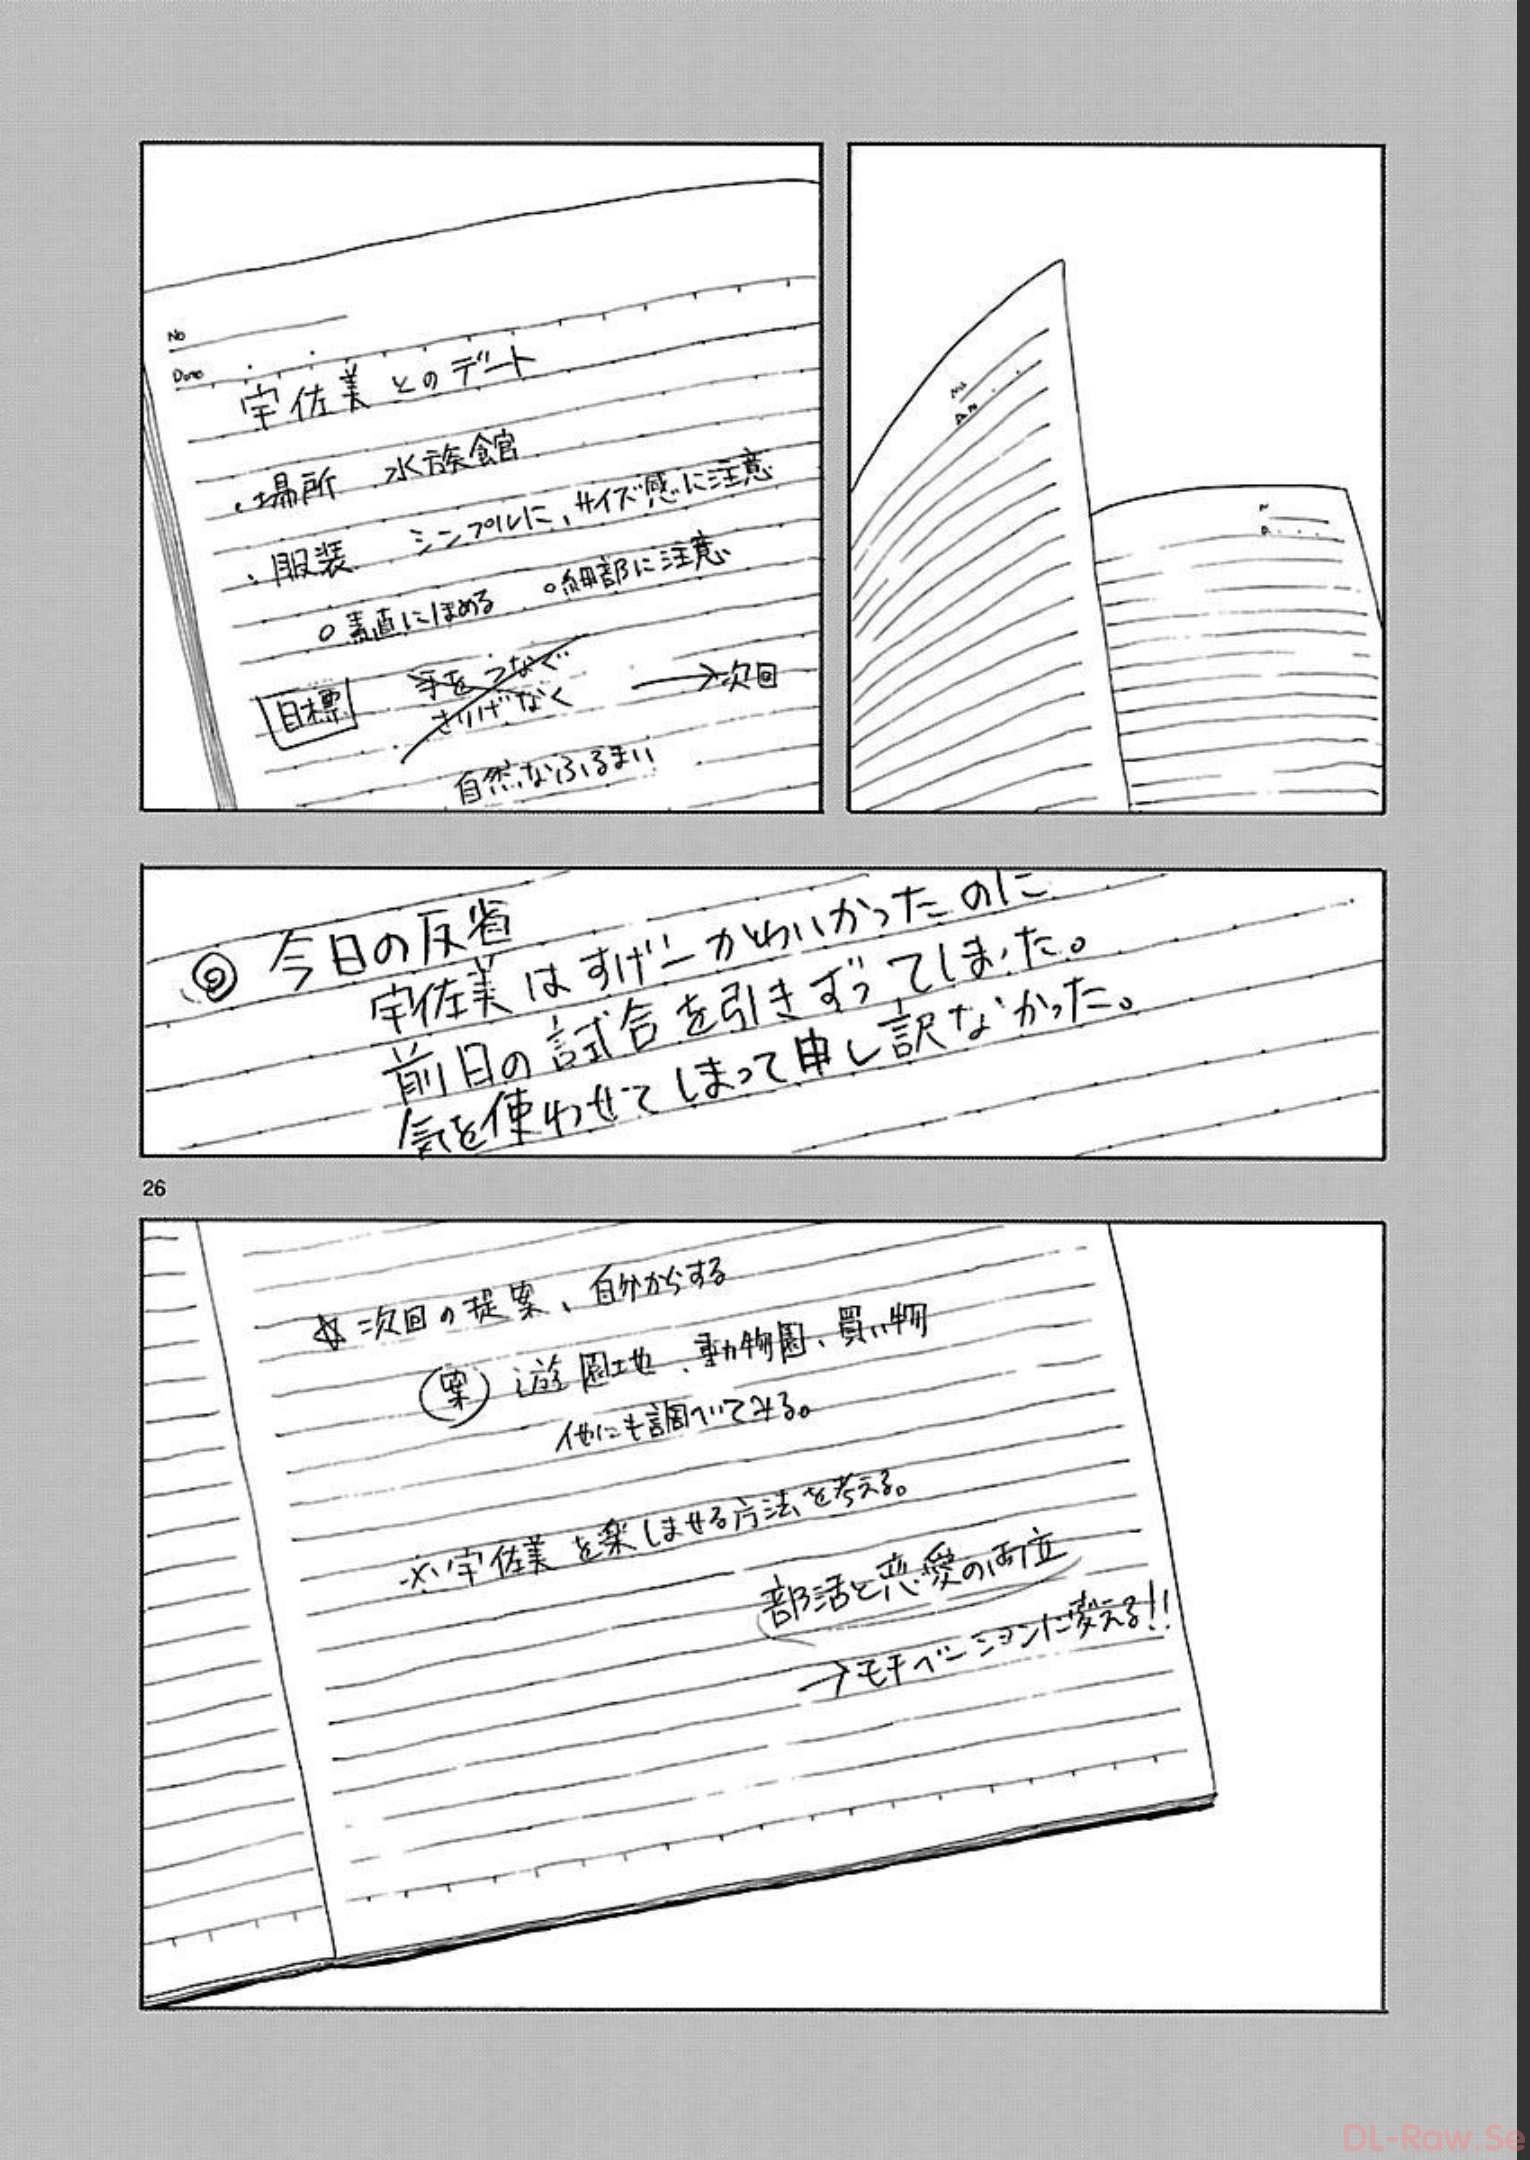 No
Date
宇佐美とのデート
・場所 水族館
・服装 シンプルに、サイズ感に注意
○素直にほめる ○細部に注意
目標 手をつなぐ →次回
さりげなく
自然なふるまい
◎今日の反省
宇佐美はすげーかわいかったのに
前日の試合を引きずってしまった。
気を使わせてしまって申し訳なかった。
26
☆次回の提案、自分からする
案 遊園地、動物園、買い物
他にも調べてみる。
※宇佐美を楽しませる方法を考える。
部活と恋愛の両立
→モチベーションに変える!!
DL-Raw.Se